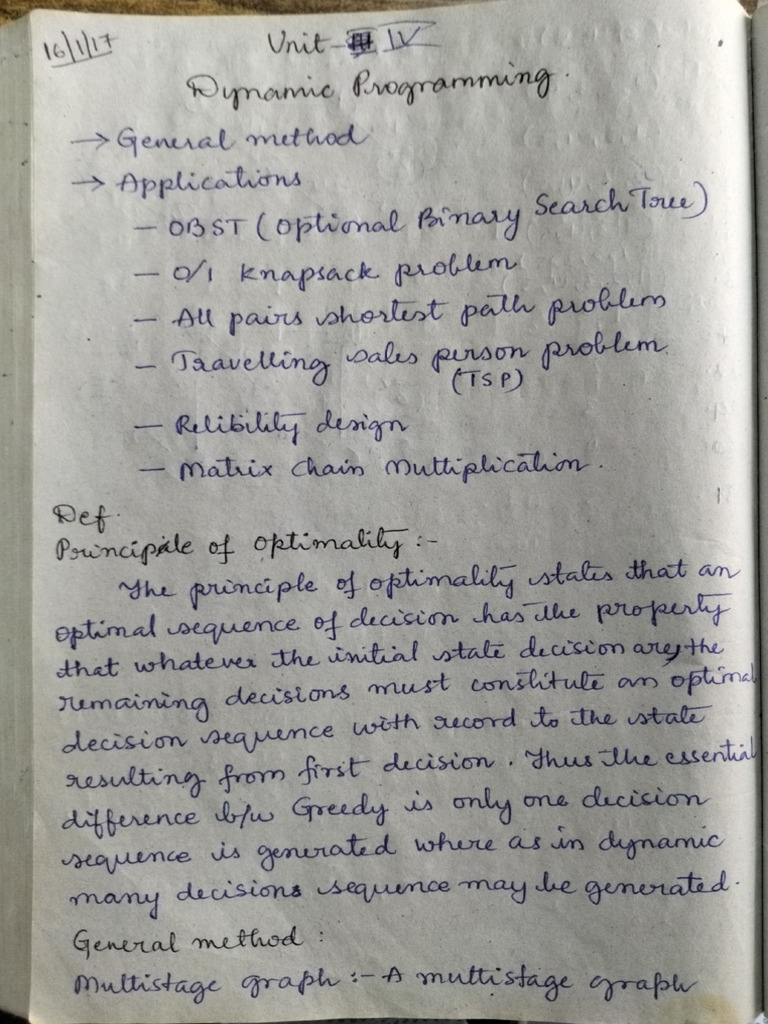 16/1/17
Unit - IV
Dynamic Programming.
→ General method
→ Applications
— OBST (Optional Binary Search Tree)
— 0/1 Knapsack problem
— All pairs shortest path problem
— Travelling sales person problem.
(TSP)
— Relibility design
— Matrix chain Multiplication.
Def.
Principle of optimality :-
The principle of optimality states that an
optimal sequence of decision has the property
that whatever the initial state decision are, the
remaining decisions must constitute an optimal
decision sequence with record to the state
resulting from first decision. Thus the essential
difference b/w Greedy is only one decision
sequence is generated where as in dynamic
many decisions sequence may be generated.
General method :
Multistage graph :- A multistage graph